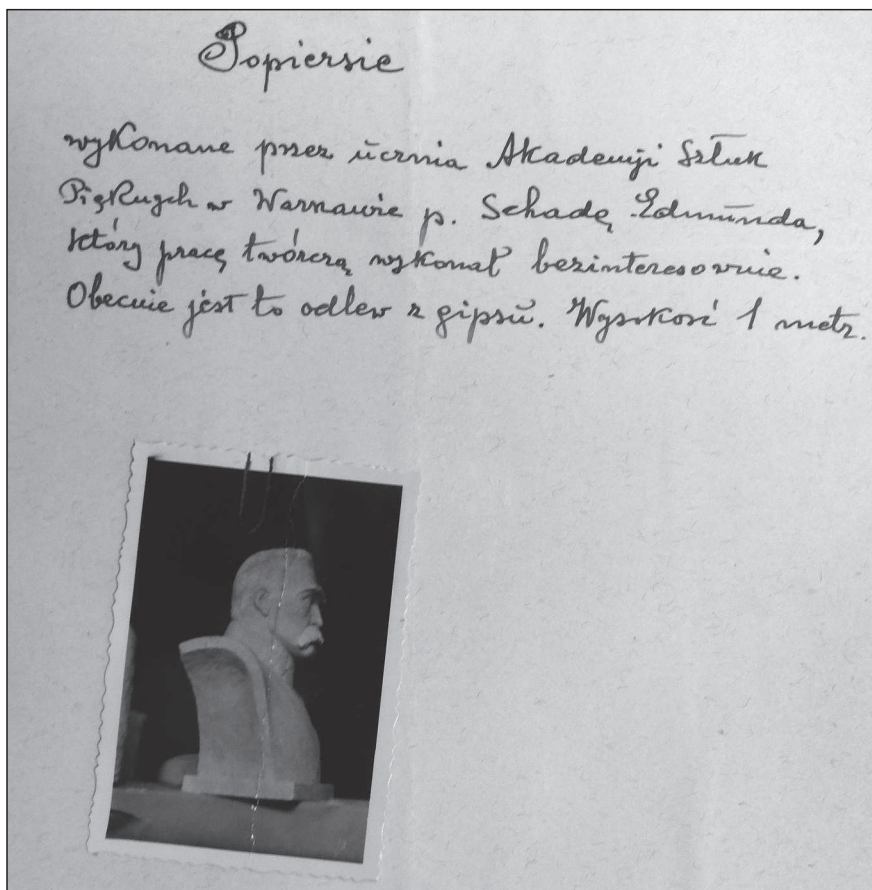 Popiersie
wykonane przez ucznia Akademji Sztuk
Pięknych w Warszawie p. Schadę Edmunda,
który pracę twórczą wykonał bezinteresownie.
Obecnie jest to odlew z gipsu. Wysokość 1 metr.